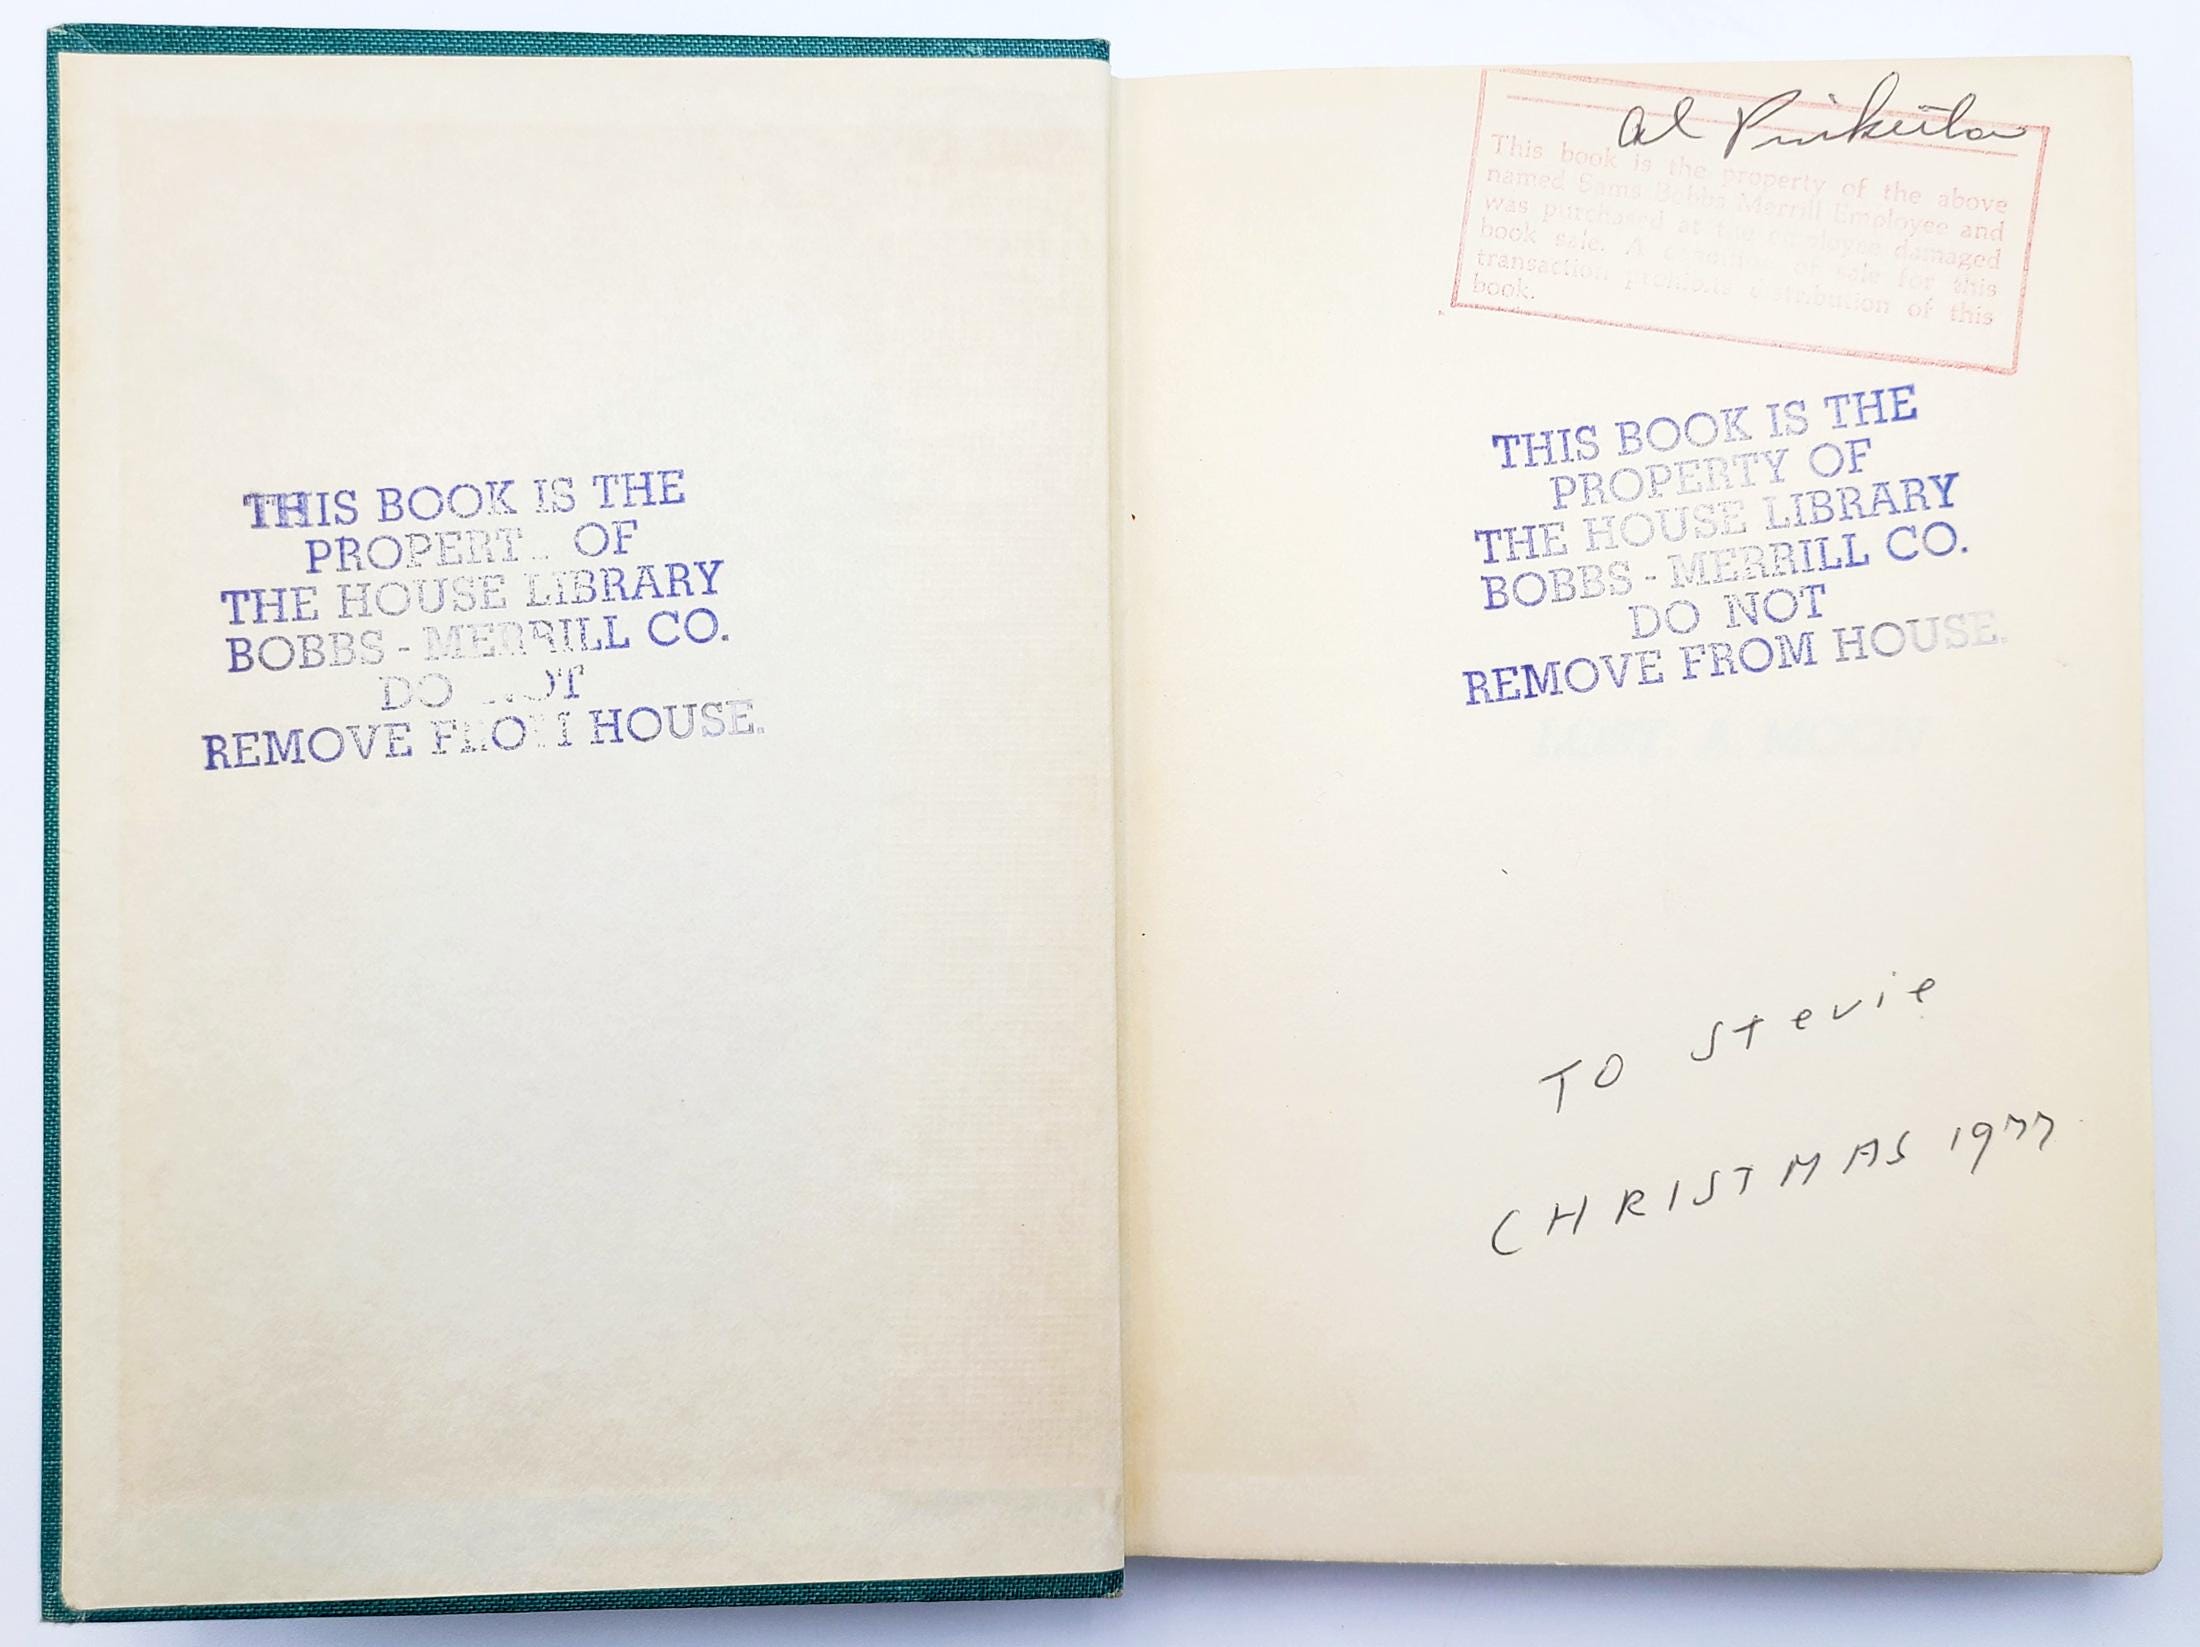 THIS BOOK IS THE
PROPERT OF
THE HOUSE LIBRARY
BOBBS - MERRILL CO.
DO NOT
REMOVE FROM HOUSE.
Al Pinkerton
This book is the property of the above
named Sams Bobbs Merrill Employee and
was purchased at the employee damaged
book sale. A condition of sale for this
transaction prohibits distribution of this
book.
THIS BOOK IS THE
PROPERTY OF
THE HOUSE LIBRARY
BOBBS - MERRILL CO.
DO NOT
REMOVE FROM HOUSE.
TO Stevie
CHRISTMAS 1977